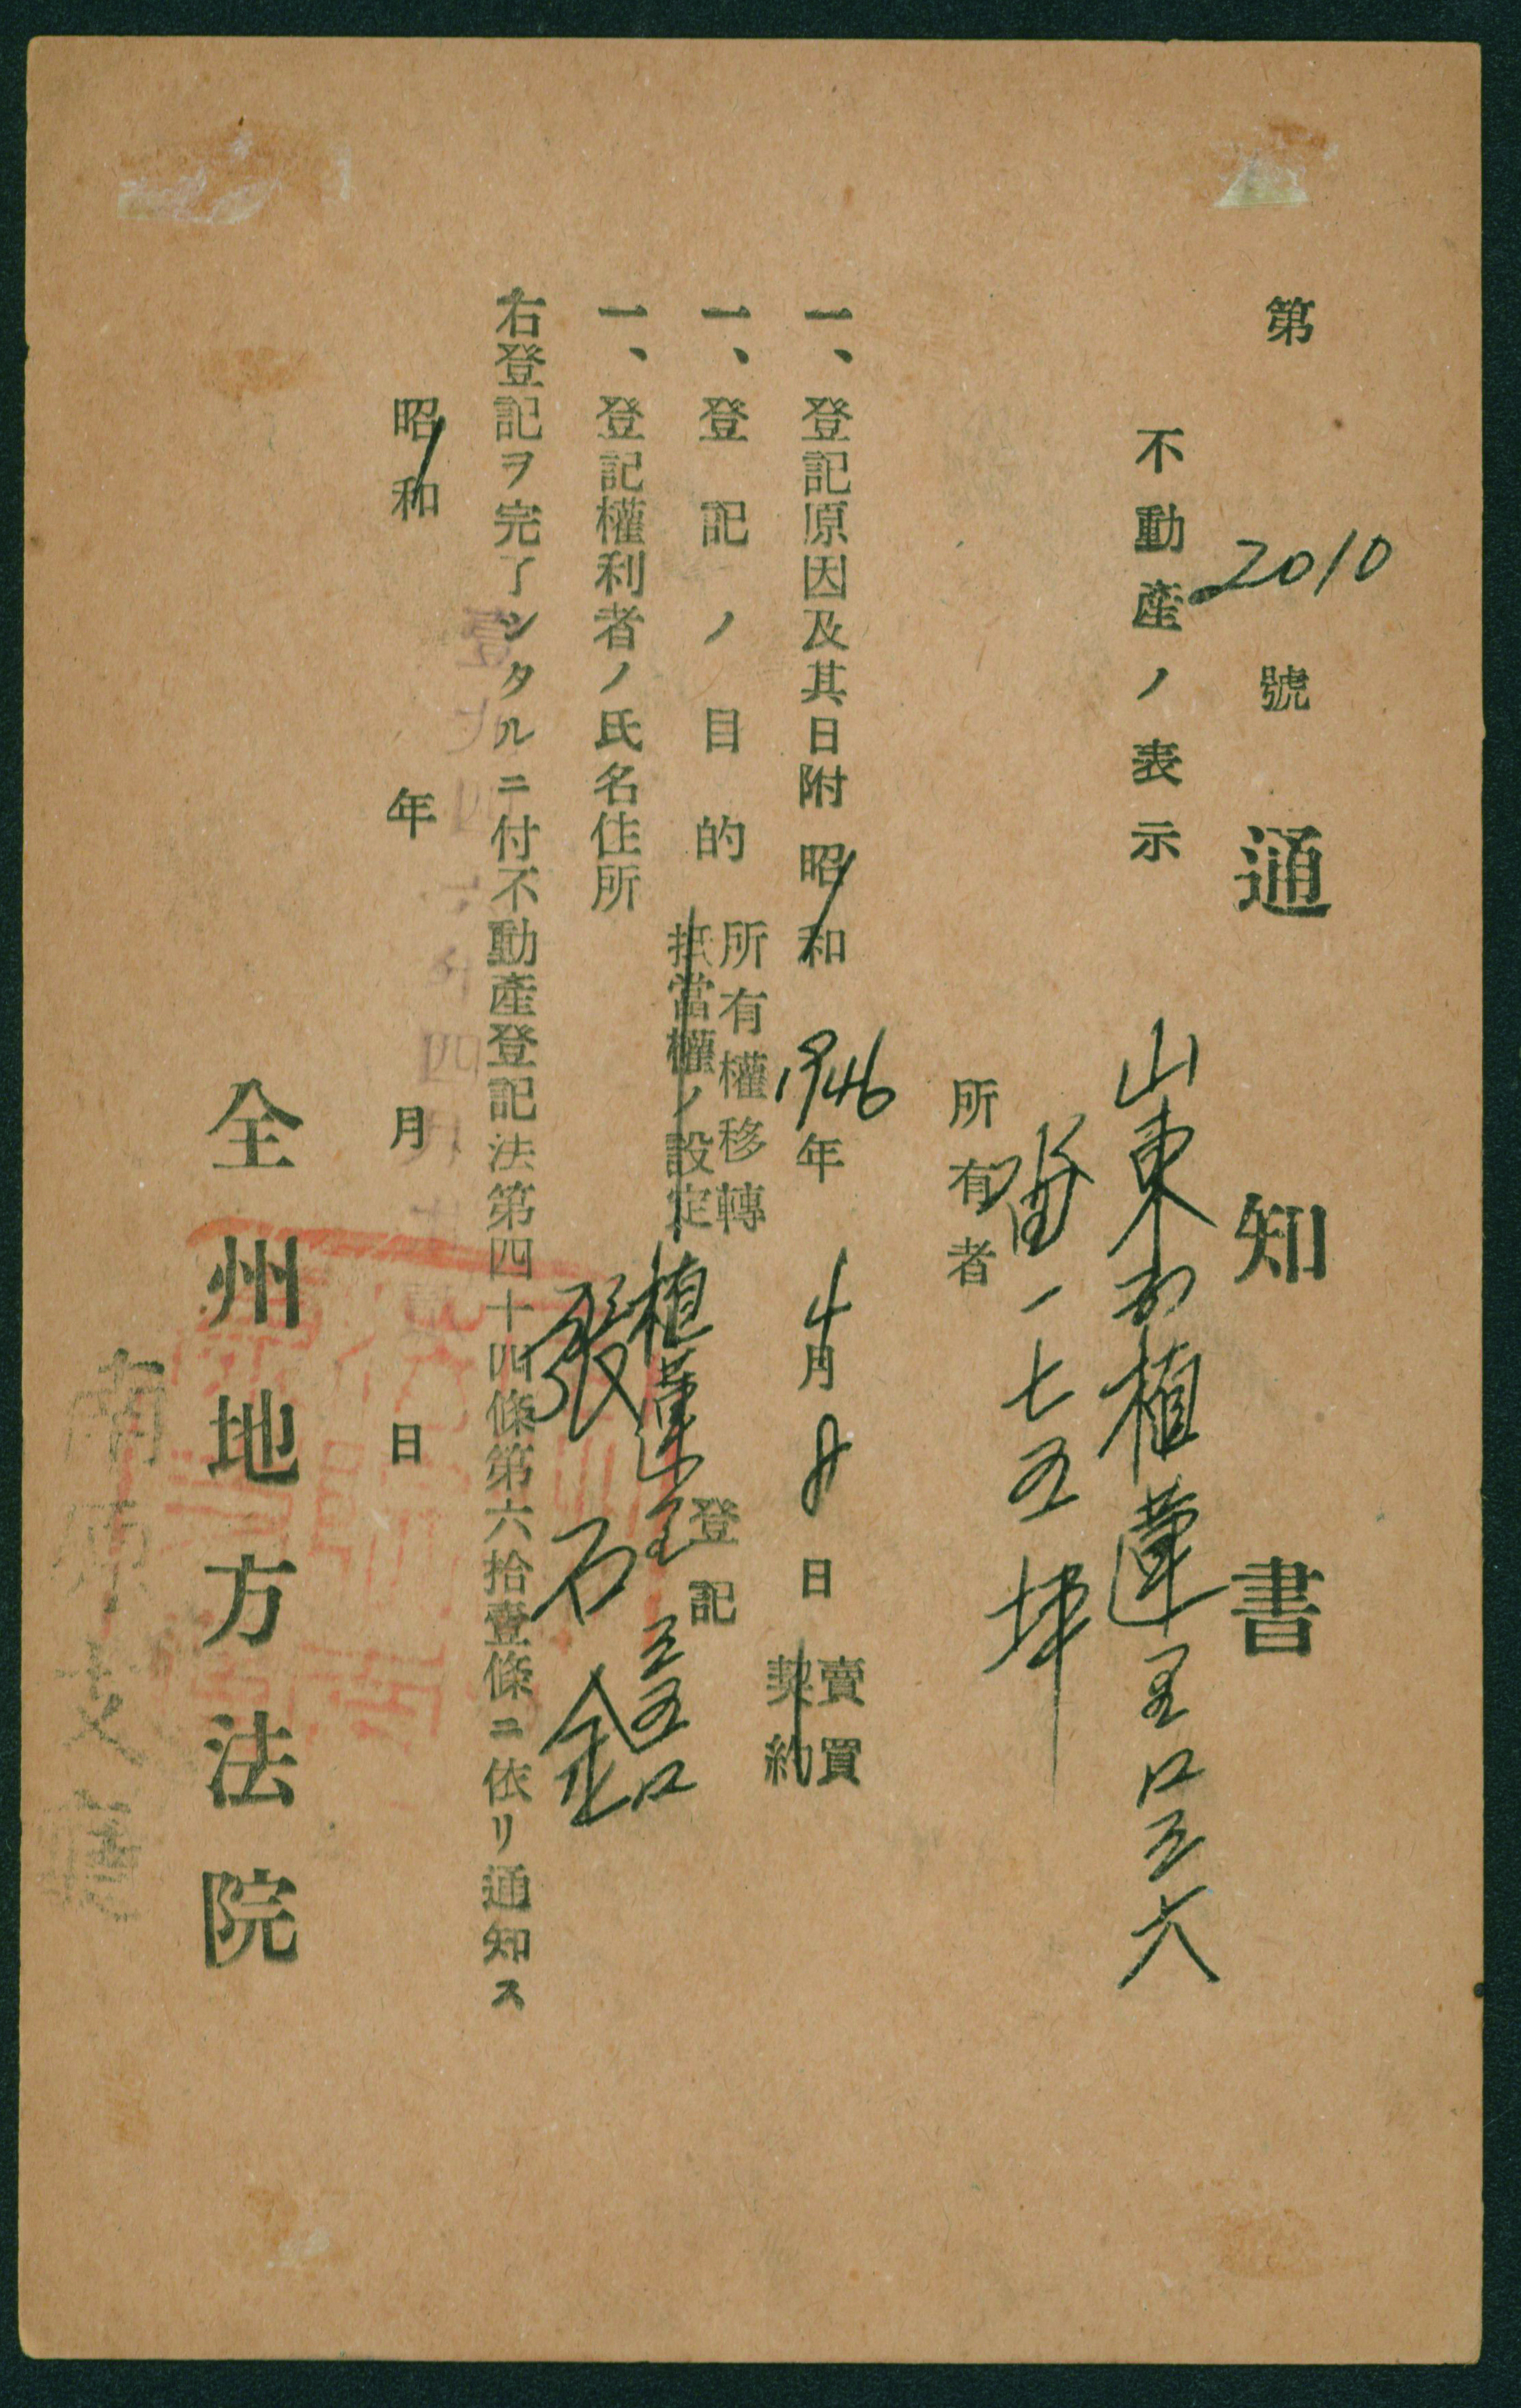 第2010號
通知書
不動產ノ表示
山東面植蓮里
一七五坪
所有者
一、登記原因及其日附 昭和1946年4月8日 賣買
契約
一、登記ノ目的 所有權移轉
抵當權ノ設定
登記
一、登記權利者ノ氏名住所
植蓮里
張石
右登記ヲ完了シタルニ付不動產登記法第四十四條第六拾壹條ニ依リ通知ス
昭和 年 月 日
全州地方法院
南原支廳